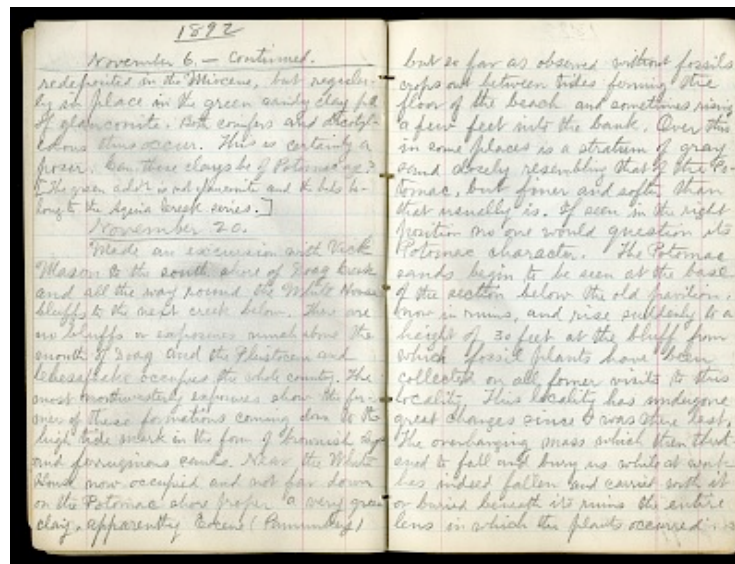 1892
November 6. — Continued.
redeposited in the Miocene, but regular-
ly in place in the green sandy clay full
of glauconite. Both conifers and dicotyl-
edons thus occur. This is certainly a
poser. Can these clays be of Potomac age?
[The green color is not glauconite and the beds be-
long to the Aquia Creek series.]
November 20.
Made an excursion with Vick
Mason to the south shore of Doag Creek
and all the way round the White House
bluffs to the next creek below. There are
no bluffs or exposures much above the
mouth of Doag and the Pleistocene and
Chesapeake occupies the whole country. The
most northwesterly exposures show the for-
mer of these formations coming down to the
high tide mark in the form of brownish clays
and ferruginous sands. Near the White
House now occupied and not far down
on the Potomac shore proper a very green
clay, apparently Eocene (Pamunkey)
but so far as observed without fossils
crops out between tides forming the
floor of the beach and sometimes rising
a few feet into the bank. Over this
in some places is a stratum of gray
sand closely resembling that of the Po-
tomac, but finer and softer than
that usually is. If seen in the right
position no one would question its
Potomac character. The Potomac
sands begin to be seen at the base
of the section below the old pavilion,
now in ruins, and rise suddenly to a
height of 30 feet at the bluff from
which fossil plants have been
collected on all former visits to this
locality. This locality has undergone
great changes since I was there last.
The overhanging mass which then threat-
ened to fall and bury us while at work
has indeed fallen and carried with it
or buried beneath its ruins the entire
lens in which the plants occurred.